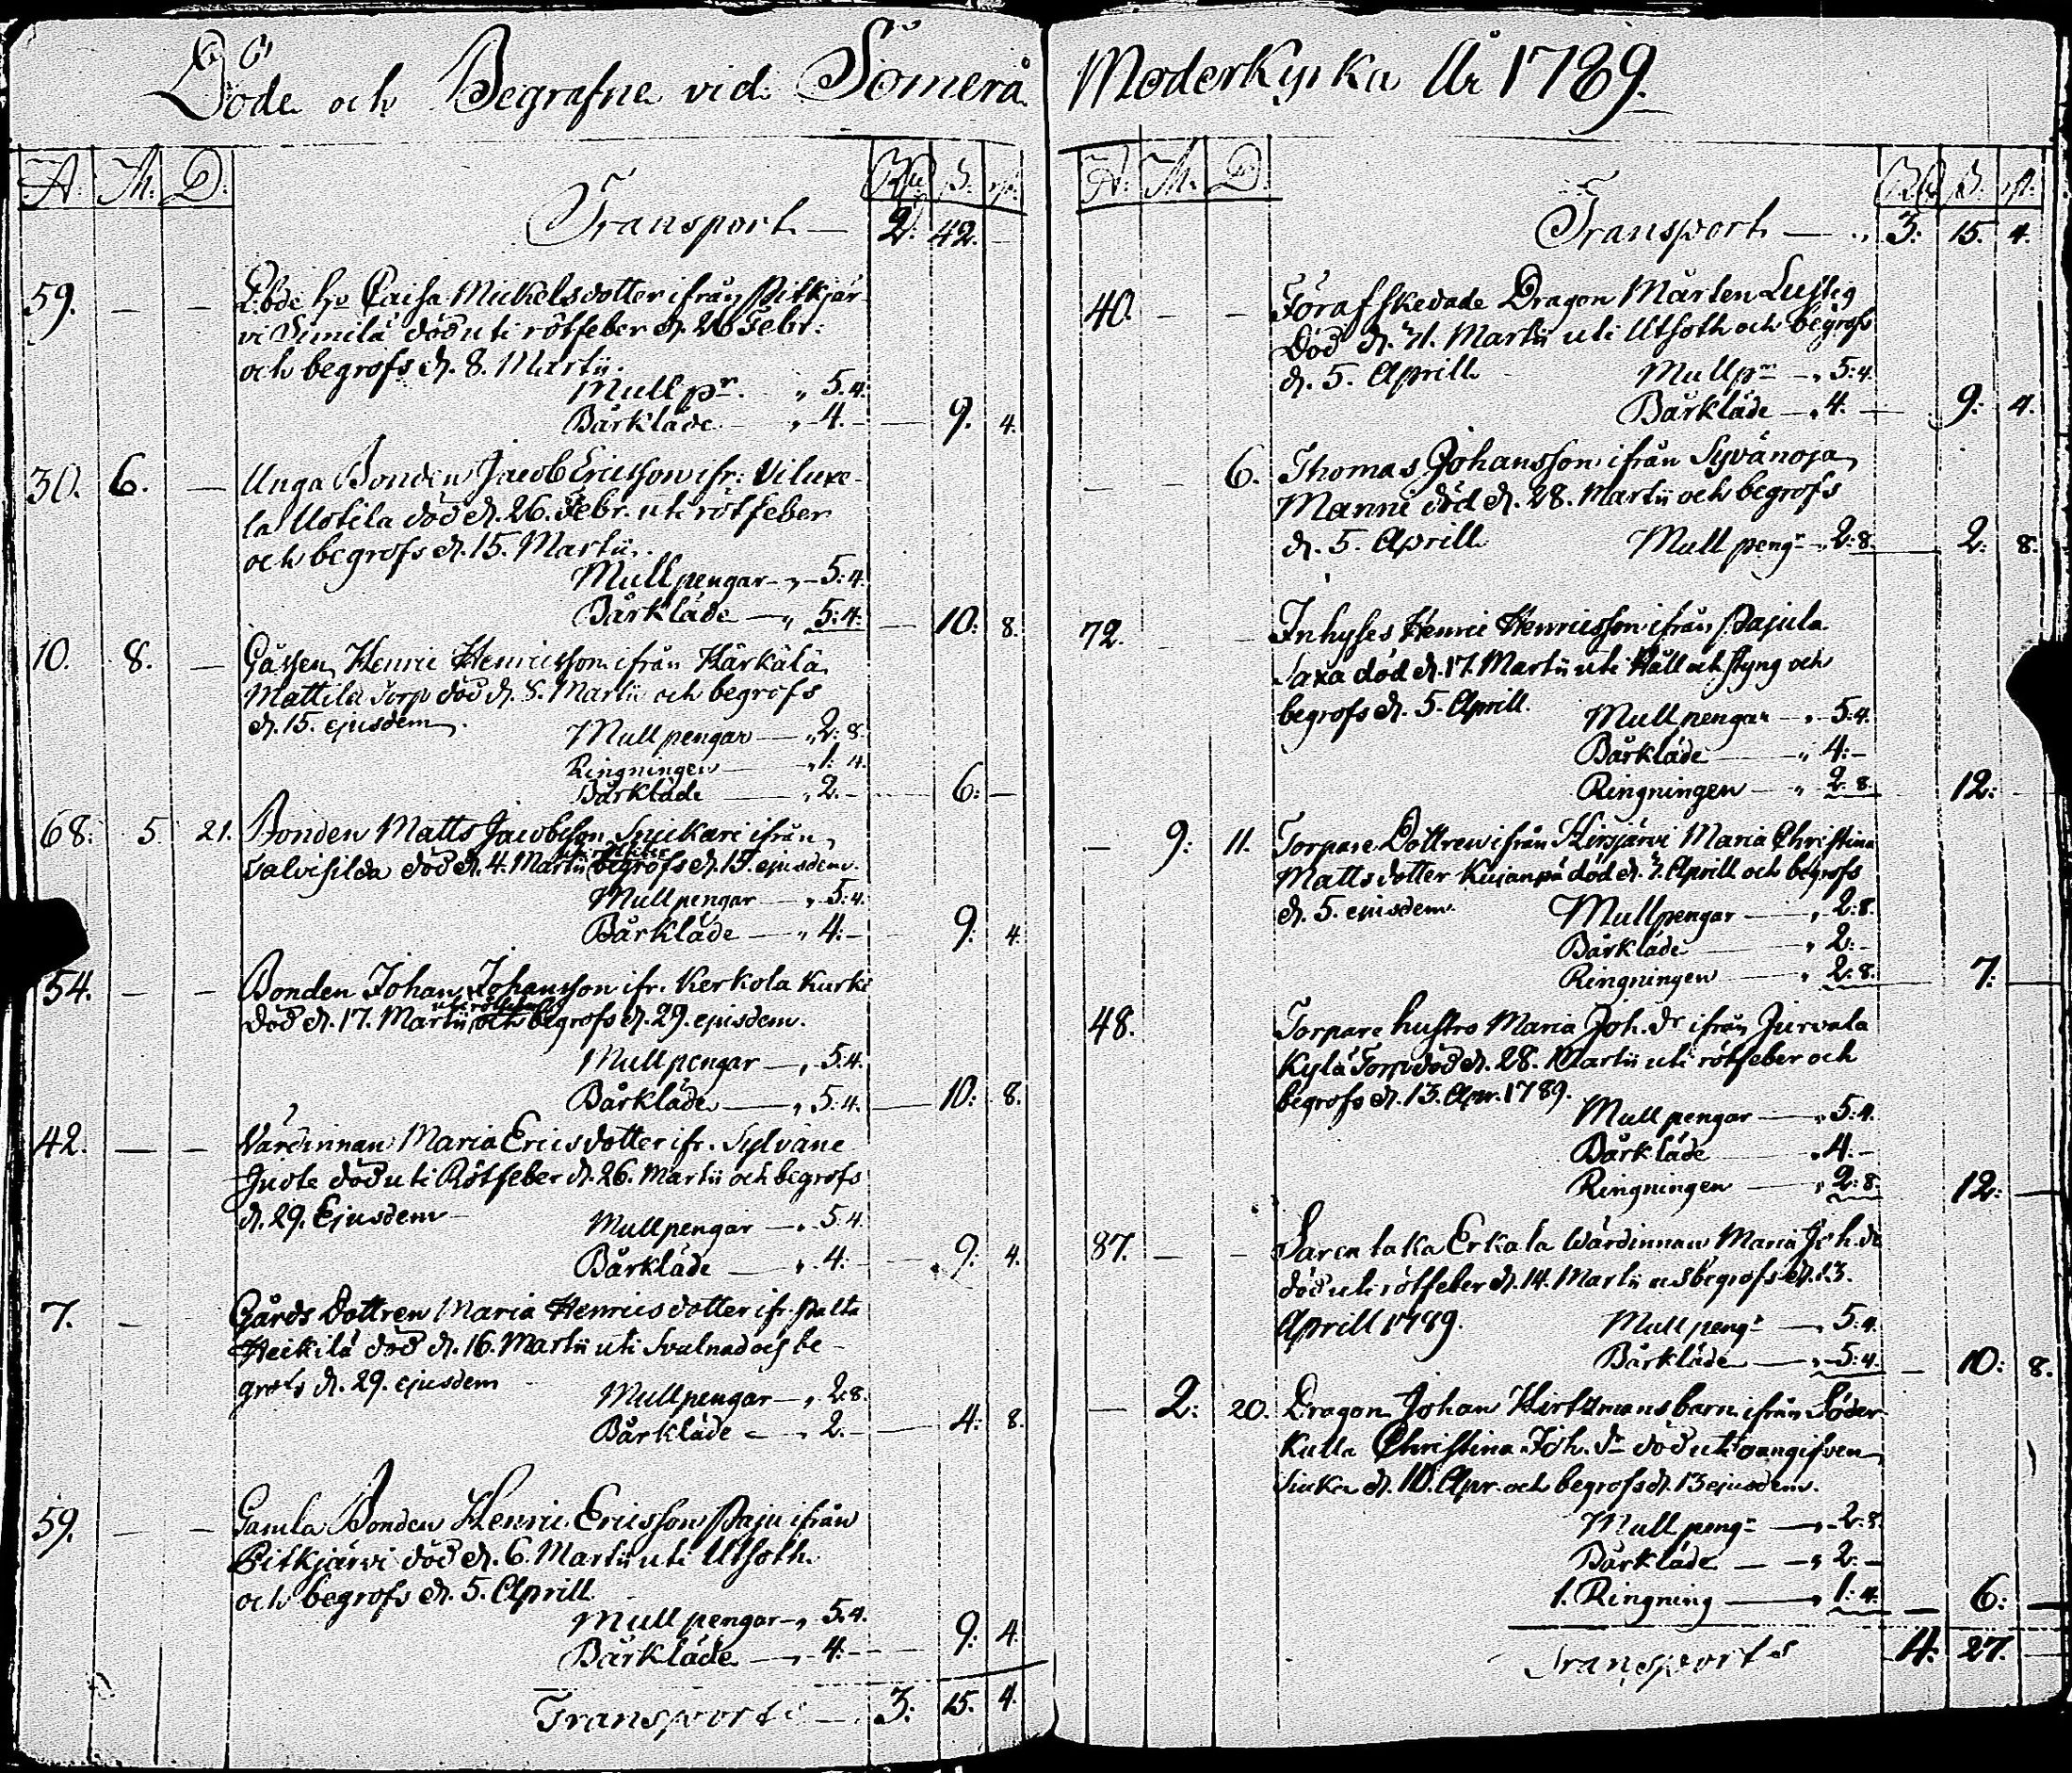 Döde och Begrafne vid Somerå Moderkyrka År 1789.
A. M. D. Rd. ß. rst.
Transport — 2: 42. —
59. — — hu Caisa Mickelsdotter ifrån Pitkjär-
vi Simila död uti rötfeber d. 26 Febr:
och begrofs d. 8. Martii.
Mull pr. „ 5.4.
Bårkläde — „ 4. — 9. 4.
30. 6. — Unga Bonden Jacob Ericsson ifr: Viluxe-
la Uotila död d. 26. Febr. uti rötfeber
och begrofs d. 15. Martii.
Mullpengar — „ 5:4.
Bårkläde — „ 5:4. — 10: 8.
10. 8. — Gåssen Henric Henricsson ifrån Kärkälä
Mattila Torp död d. 8. Martii och begrofs
d. 15. ejusdem.
Mullpengar — „ 2: 8.
Ringningen — „ 1: 4.
Bårkläde — „ 2. — 6: —
68: 5 21. Bonden Matts Jacobsson Snickari ifrån
Salvisilda död d. 4. Martii begrofs d. 15. ejusdem.
Mullpengar — „ 5:4.
Bårkläde — „ 4: — 9: 4.
54. — — Bonden Johan Johansson ifr. Kerkola Kurki
uti rötfeber
död d. 17. Martii och begrofs d. 29. ejusdem.
Mullpengar — „ 5.4.
Bårkläde — „ 5:4. — 10: 8.
42. — — Värdinnan Maria Ericsdotter ifr. Sylväne
Juote död uti Rötfeber d. 26. Martii och begrofs
d. 29. Ejusdem
Mullpengar — „ 5.4.
Bårkläde — „ 4. — 9: 4.
7. — Gårds Dottren Maria Henricsdotter ifr. Palta
Heikilä död d. 16. Martii uti Svulnad och be-
grofs d. 29. ejusdem
Mullpengar — „ 2.8.
Bårkläde — „ 2. — 4: 8.
59. — — Gamla Bonden Henric Ericsson Paju ifrån
Pitkjärvi död d. 6. Martii uti Utsoth
och begrofs d. 5. Aprill
Mullpengar — „ 5.4.
Bårkläde — „ 4: — 9: 4.
Transporte — 3: 15. 4.
A. M. D. Rd. ß. rst.
Transport — „ 3: 15. 4.
40. — — Förafskedade Dragon Mårten Lustig
Död d. 21. Martii uti Utsoth och begrofs
d. 5. Aprill
Mullpr — „ 5:4.
Bårkläde — „ 4. — 9: 4.
— — 6. Thomas Johansson ifrån Syvänoja
Manni död d. 28. Martii och begrofs
d. 5. Aprill Mull pengr — „ 2:8. — 2: 8.
72. — Inhyses Henric Henricsson ifrån Pajula
Saxa död d. 17. Martii uti Håll och styng och
begrofs d. 5. Aprill.
Mullpengar — „ 5:4.
Bårkläde — „ 4: —
Ringningen — „ 2:8. 12: —
— 9: 11. Torpare Dottren ifrån Hirsjärvi Maria Christina
Mattsdotter Kujanpä död d. 2. Aprill och begrofs
d. 5. ejusdem.
Mullpengar — „ 2:8.
Bårkläde — „ 2: —
Ringningen — „ 2:8. 7: —
48. Torpare hustro Maria Joh. Dr ifrån Jurvala
Kylä Torp död d. 28. Martii uti rötfeber och
begrofs d. 13. Apr. 1789.
Mullpengar — „ 5:4.
Bårkläde „ 4. —
Ringningen — „ 2:8. 12: —
87. — — Sarcalaka Erkala Wärdinnan Maria Joh. dr
död uti rötfeber d. 14. Martii begrofs d. 13.
Aprill 1789.
Mullpengr — „ 5:4.
Bårkläde — „ 5:4. — 10: 8.
— 2: 20. Dragon Johan barn ifrån Söder
Kulla Christina Joh. dr död uti oangifven
Siuka d. 10. Apr. och begrofs d. 13 ejusdem.
Mull pengr — „ 2:8.
Bårkläde — „ 2: —
1. Ringning — „ 1:4. — 6: —
Transports 4: 27. —